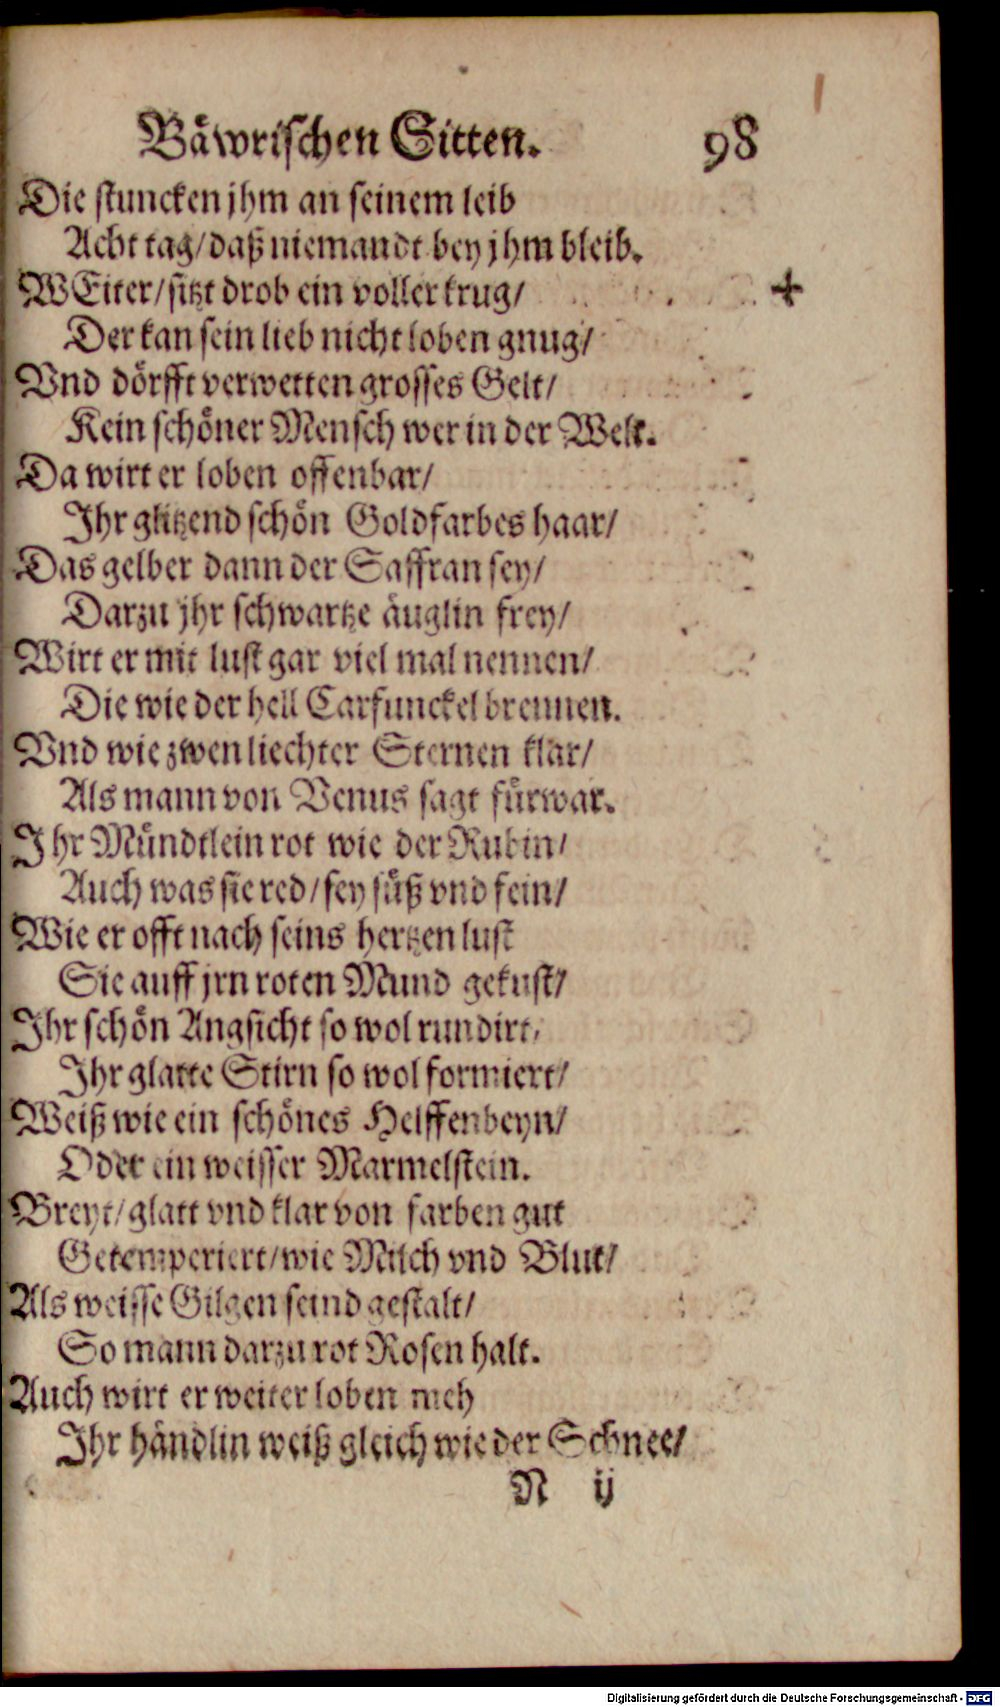 Bäwrischen Sitten. 98
Die stuncken jhm an seinem leib
Acht tag/ daß niemandt bey jhm bleib.
WEiter/ sitzt drob ein voller krug/
Der kan sein lieb nicht loben gnug/
Vnd dörfft verwetten grosses Gelt/
Kein schöner Mensch wer in der Welt.
Da wirt er loben offenbar/
Ihr glitzend schön Goldfarbes haar/
Das gelber dann der Saffran sey/
Darzu jhr schwartze äuglin frey/
Wirt er mit lust gar viel mal nennen/
Die wie der hell Carfunckel brennen.
Vnd wie zwen liechter Sternen klar/
Als mann von Venus sagt fürwar.
Ihr Mündtlein rot wie der Rubin/
Auch was sie red/ sey süß vnd fein/
Wie er offt nach seins hertzen lust
Sie auff jrn roten Mund gekust/
Ihr schön Angsicht so wol rundirt/
Ihr glatte Stirn so wol formiert/
Weiß wie ein schönes Helffenbeyn/
Oder ein weisser Marmelstein.
Breyt/ glatt vnd klar von farben gut
Getemperiert/ wie Milch vnd Blut/
Als weisse Gilgen seind gestalt/
So mann darzu rot Rosen halt.
Auch wirt er weiter loben meh
Ihr händlin weiß gleich wie der Schnee/
N ij
Digitalisierung gefördert durch die Deutsche Forschungsgemeinschaft - DFG